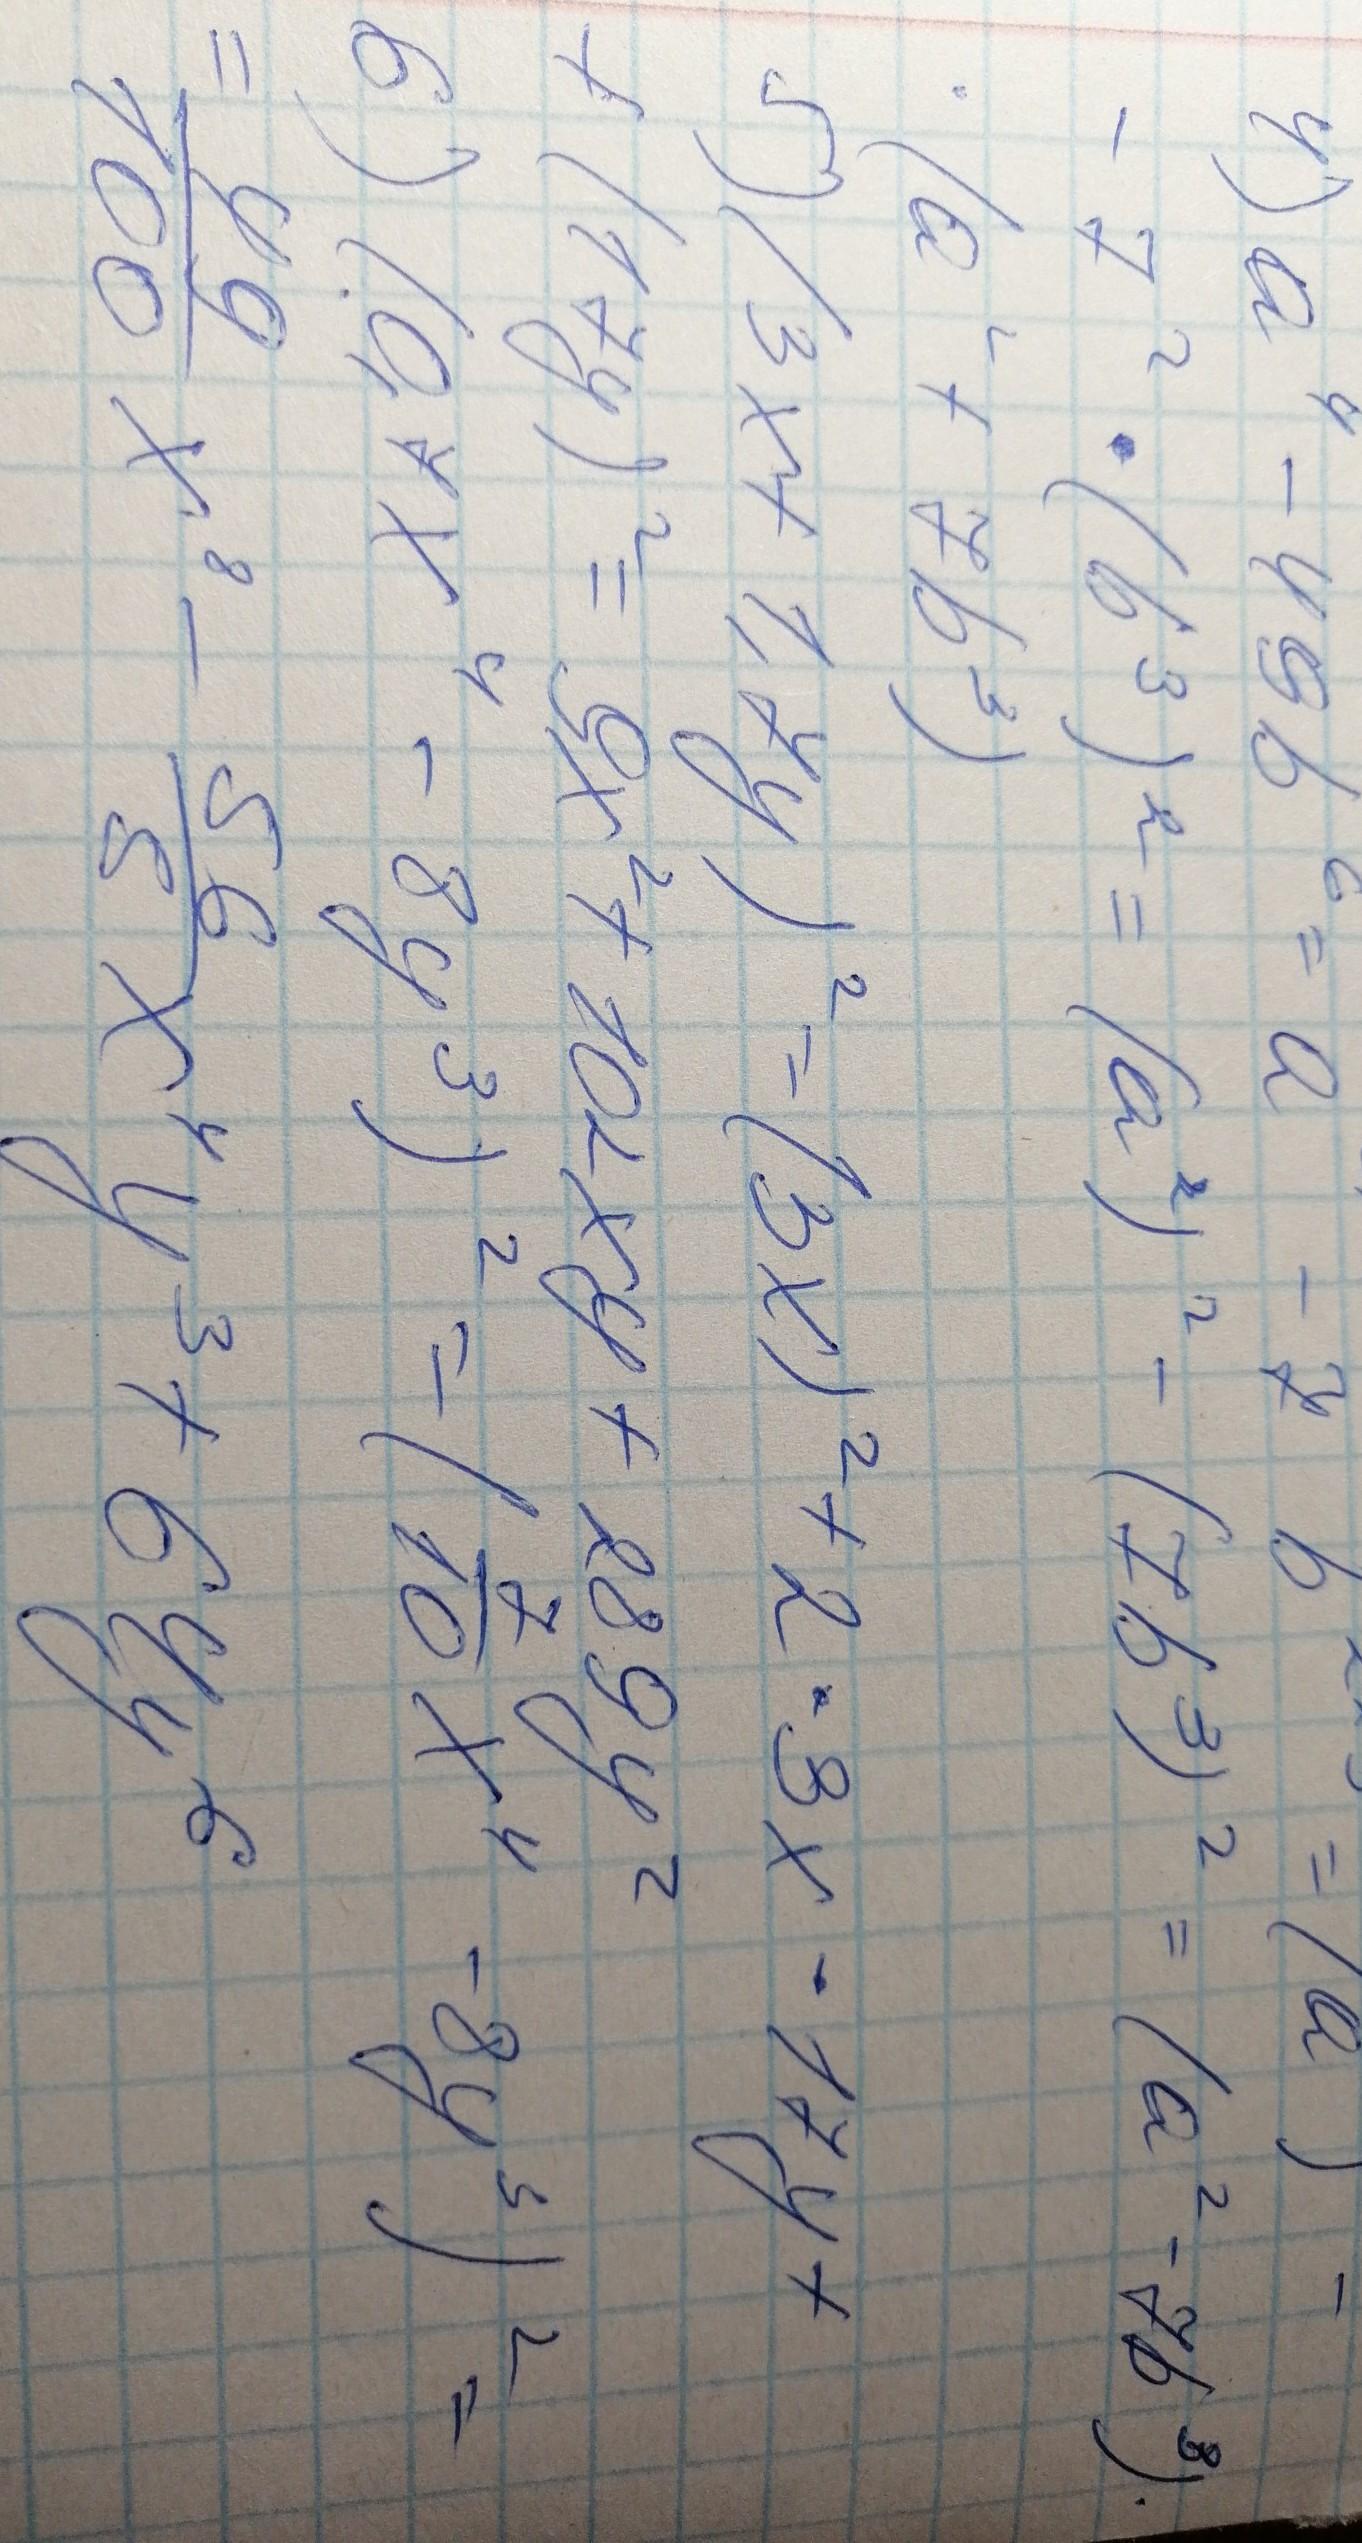 4) a⁴ - 49b⁶ = a - 7 b = (a ) -
- 7² · (b³)² = (a²)² - (7b³)² = (a² - 7b³) ·
· (a² + 7b³)
5) (3x + 17y)² = (3x)² + 2 · 3x · 17y +
+ (17y)² = 9x² + 102xy + 289y²
6) (0,7x⁴ - 8y³)² = (7/10 x⁴ - 8y³)² =
= 49/100 x⁸ - 56/5 x⁴y³ + 64y⁶